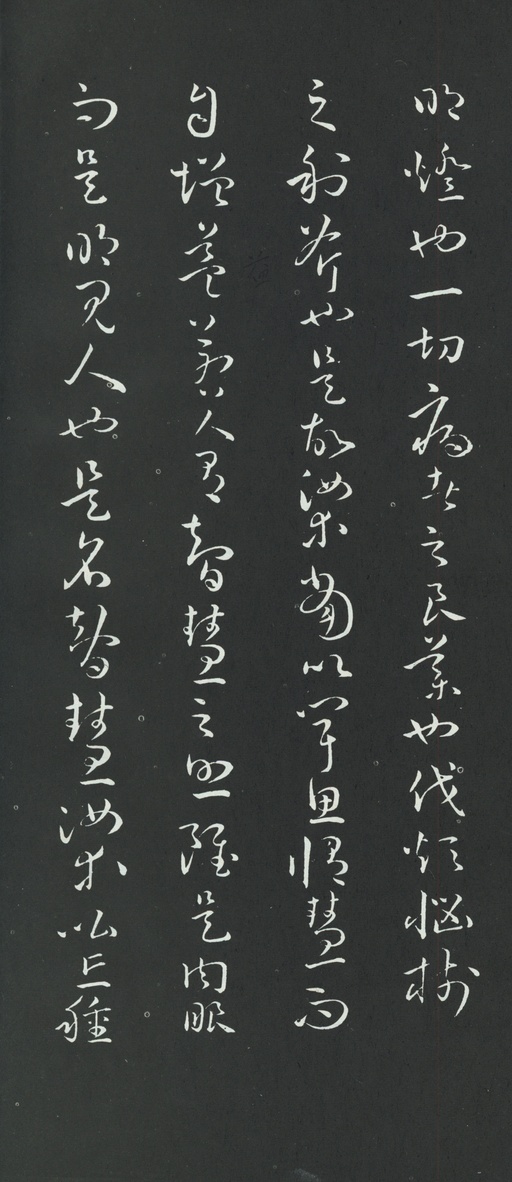 明燈也一切病者之良藥也伐煩惱樹
之利斧也是故汝等當以聞思修慧而
自增益若人有智慧之照雖是肉眼
而是明見人也是名智慧汝等比丘種